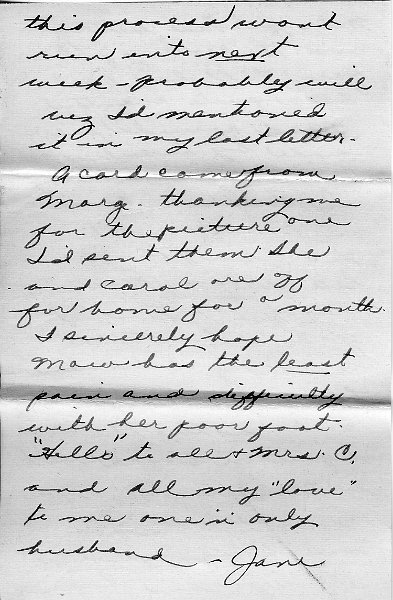 this process won't
run into next
week - probably will
wz I'd mentioned
it in my last letter.
A card came from
Marg. thanking me
for the picture one
I'd sent them. She
and Carol are off
for home for a month.
I sincerely hope
Maw has the least
pain and difficulty
with her poor foot.
"Hello" to all & Mrs. C.
and all my "love"
to me one 'n only
husband - Jane